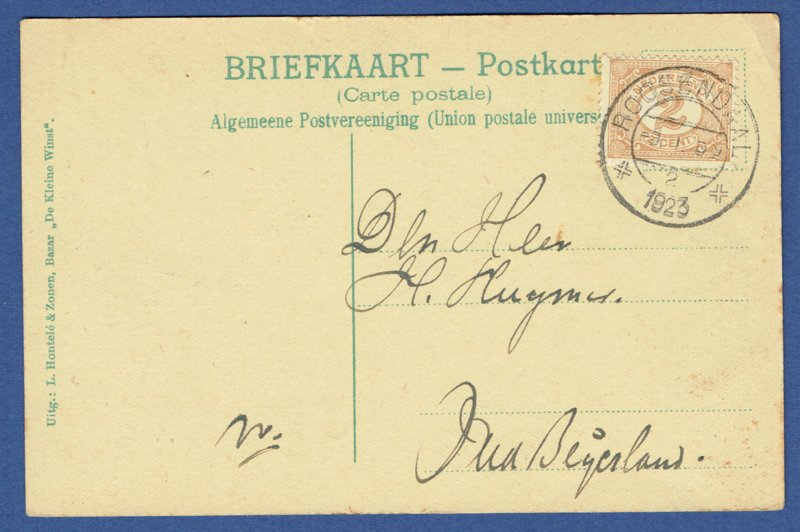 BRIEFKAART — Postkart
(Carte postale)
Algemeene Postvereeniging (Union postale univers
NEDERLAND
2
CENT
ROOSENDAAL
2
1923
Uitg.: L. Hontelé & Zonen, Bazar „De Kleine Winst".
Den Heer
H. Huymer.
Oud Beijerland.